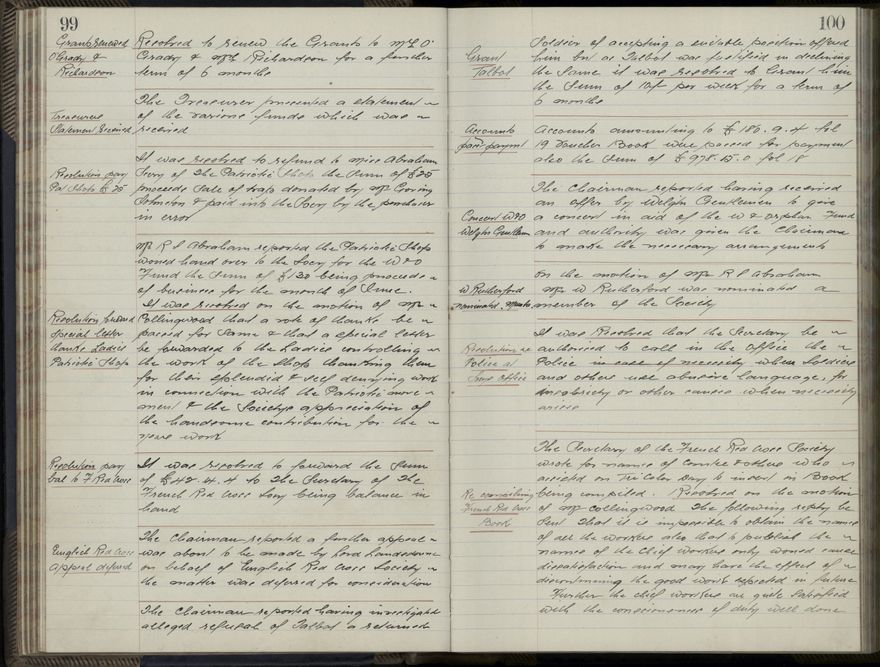 99
Grants renewed
O'Grady &
Richardson
Resolved to renew the Grants to Mrs O'
Grady & Mrs Richardson for a further
term of 6 months
Treasurers
Statement received
The Treasurer presented a statement
of the various funds which was
received
Resolution pay
Pat Shop £25
It was resolved to refund to Miss Abraham
Secy of the Patriotic Shop the Sum of £25
proceeds Sale of traps donated by Mr
Johnston & paid into the Socy by the purchaser
in error
Mr R S Abraham reported the Patriotic Shop
would hand over to the Socy for the W & O
Fund the Sum of £120 being proceeds
of business for the month of June.
Resolution
special letter
thanks Ladies
Patriotic Shop
It was resolved on the motion of Mr
Collingwood that a vote of thanks be
passed for Same & that a special letter
be forwarded to the Ladies controlling
the work of the Shop thanking them
for their splendid & self denying work
in connection with the Patriotic move
ment & the Societys appreciation of
the handsome contribution for the
years work
Resolution pay
bal to F Red Cross
It was resolved to forward the Sum
of £42.4.4 to The Secretary of The
French Red Cross Socy being balance in
hand
English Red Cross
appeal deferred
The Chairman reported a further appeal
was about to be made by Lord Landsdowne
on behalf of English Red Cross Society
the matter was deferred for consideration
The Chairman reported having investigated
alleged refusal of Talbot a returned
100
Grant
Talbot
Soldier of accepting a suitable position offered
him but as Talbot was justified in declining
the Same it was resolved to Grant him
the Sum of 10/- per week for a term of
6 months
Accounts
pass payment
Accounts amounting to £180.9.4 fol
19 Voucher Book were passed for payment
also the Sum of £978.15.0 fol 18
Concert W & O
Welsh Gentlemen
The Chairman reported having received
an offer by Welsh Gentlemen to give
a concert in aid of the W & Orphan Fund
and authority was given the Chairman
to make the necessary arrangements
W Rutherford
nominated
On the motion of Mr R S Abraham
Mr W Rutherford was nominated a
member of the Society
Resolution re
Police at
Socys Office
It was Resolved that the Secretary be
authorised to call in the Office the
Police in case of necessity when Soldiers
and others use abusive language, for
insobriety or other causes when necessity
arises
Re compiling
French Red Cross
Book
The Secretary of the French Red Cross Society
wrote for names of Comtee & others who
assisted on Tri Color Day to insert in Book
being compiled. Resolved on the motion
of Mr Collingwood the following reply be
Sent That it is impossible to obtain the names
of all the workers also that to publish the
names of the Chief workers only would cause
dissatisfaction and may have the effect of
discontinuing the good work expected in future
Further the chief workers are quite satisfied
with the consciousness of duty well done